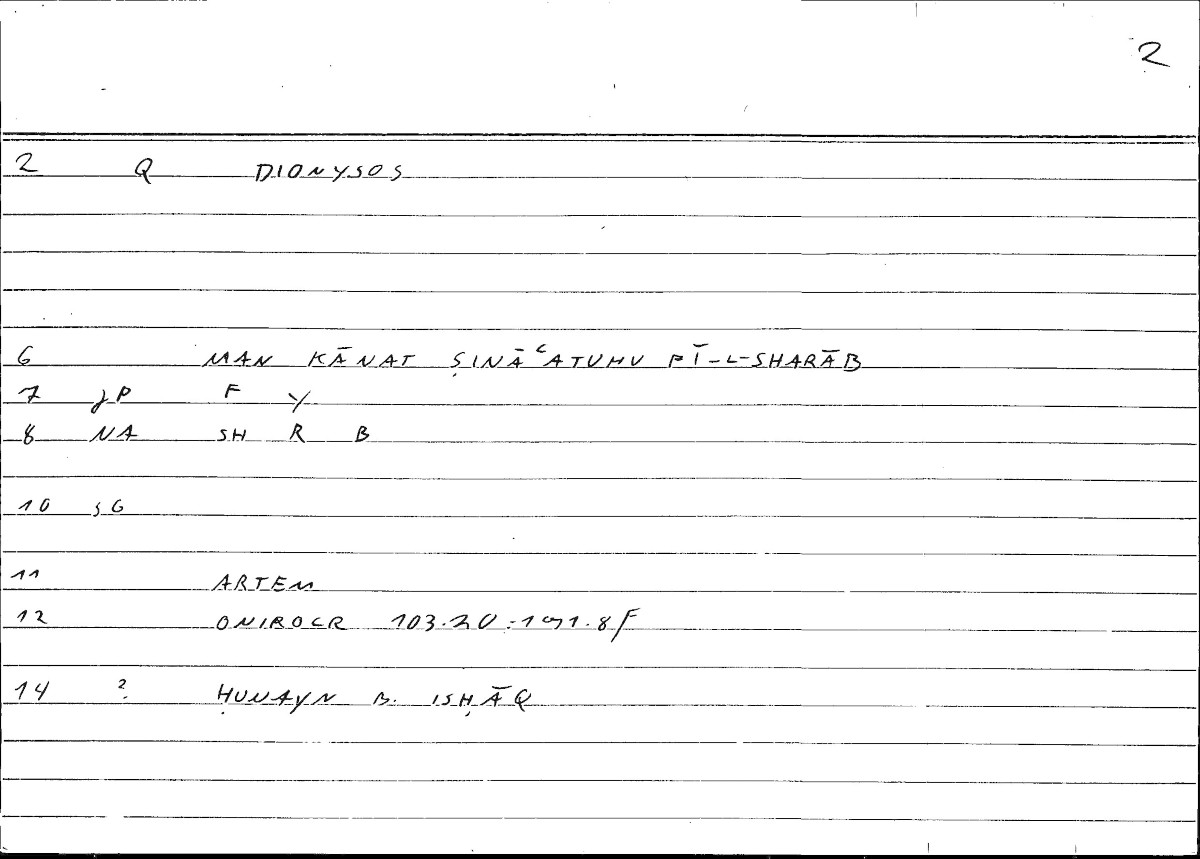 2
2 Q DIONYSOS
6 MAN KĀNAT ṢINĀʿATUHU FĪ-L-SHARĀB
7 JP F Y
8 NA SH R B
10 SG
11 ARTEM
12 ONIROCR 103.20:191.8F
14 2. ḤUNAYN B. ISḤĀQ